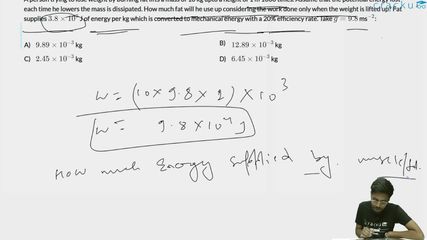 A person trying to lose weight by burning fat lifts a mass of 10 kg upto a height of 1 m 1000 times. Assume that the potential energy lost
each time he lowers the mass is dissipated. How much fat will be used up considering the work done only when the weight is lifted up? Fat
supplies 3.8 × 10⁷ J of energy per kg which is converted to mechanical energy with a 20% efficiency rate. Take g = 9.8 ms⁻²:
A) 9.89 × 10⁻³ kg
B) 12.89 × 10⁻³ kg
C) 2.45 × 10⁻³ kg
D) 6.45 × 10⁻³ kg
W = (10 × 9.8 × 1) × 10³
W = 9.8 × 10⁴ J
How much Energy supplied by